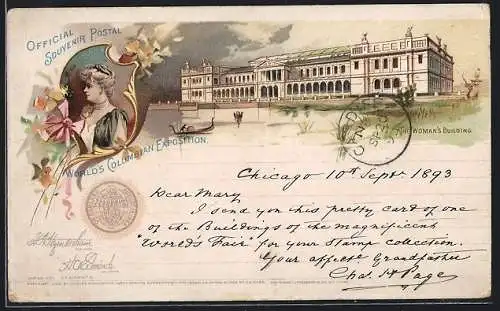 OFFICIAL
SOUVENIR POSTAL
WORLD'S COLUMBIAN EXPOSITION.
THE WOMAN'S BUILDING
Chicago 10th Sept. 1893
Dear Mary
I send you this pretty card of one
of the Buildings of the magnificent
"Worlds Fair" for your Stamp collection.
Your affecte Grandfather
Chas. H Page